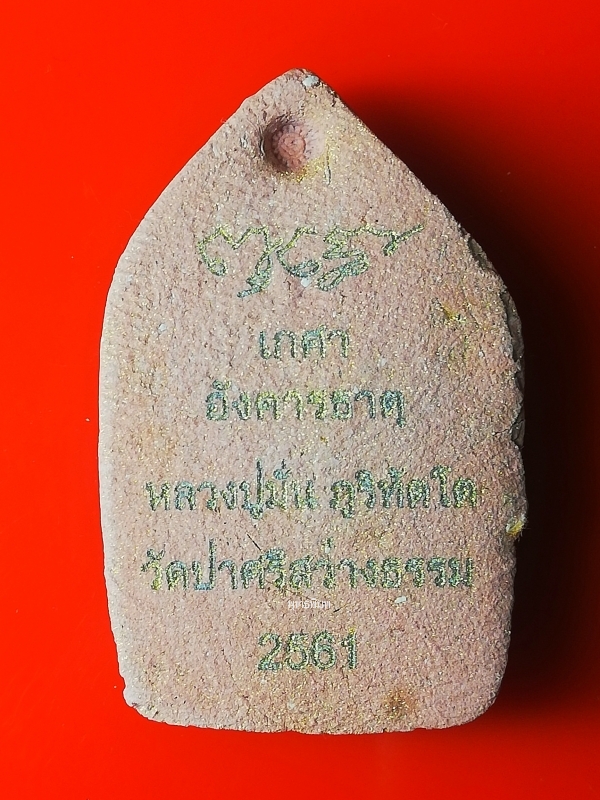 เกศา
อังคารธาตุ
หลวงปู่มั่น ภูริทัตโต
วัดป่าศรีสว่างธรรม
2561